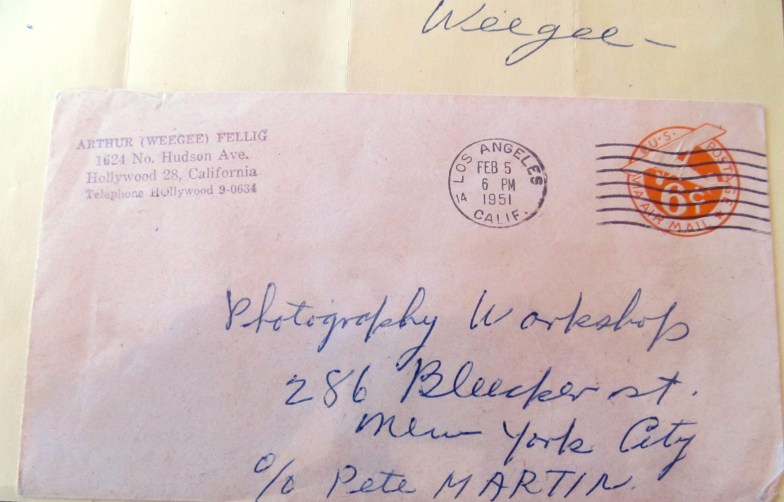 Weegee –
ARTHUR (WEEGEE) FELLIG
1624 No. Hudson Ave.
Hollywood 28, California
Telephone Hollywood 9-0634
LOS ANGELES
FEB 5
6 PM
1951
14
CALIF.
U.S. POSTAGE
6¢
VIA AIR MAIL
Photography Workshop
286 Bleecker st.
New York City
c/o Pete MARTIN.